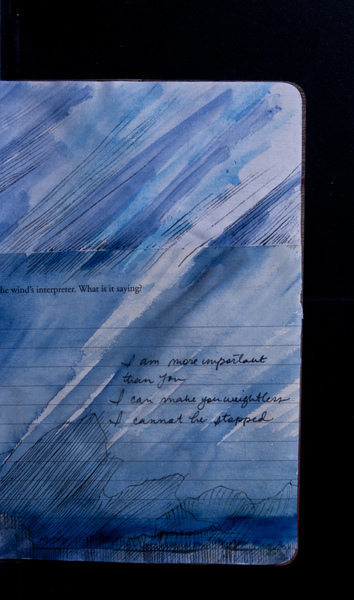 he wind's interpreter. What is it saying?
I am more important
than you
I can make you weightless
I cannot be stopped